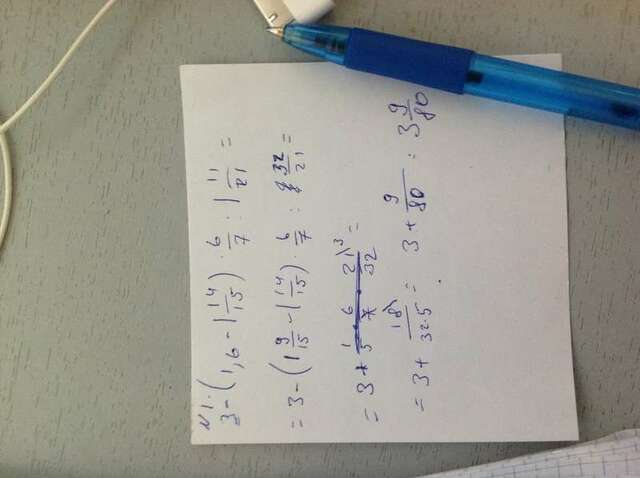 №1.
3 - (1,6 - 1 14/15) · 6/7 : 1 11/21 =
= 3 - (1 9/15 - 1 14/15) · 6/7 : 32/21 =
= 3 + 1/5 · 6/7 · 21\3/32 =
= 3 + 18/32·5 = 3 + 9/80 = 3 9/80